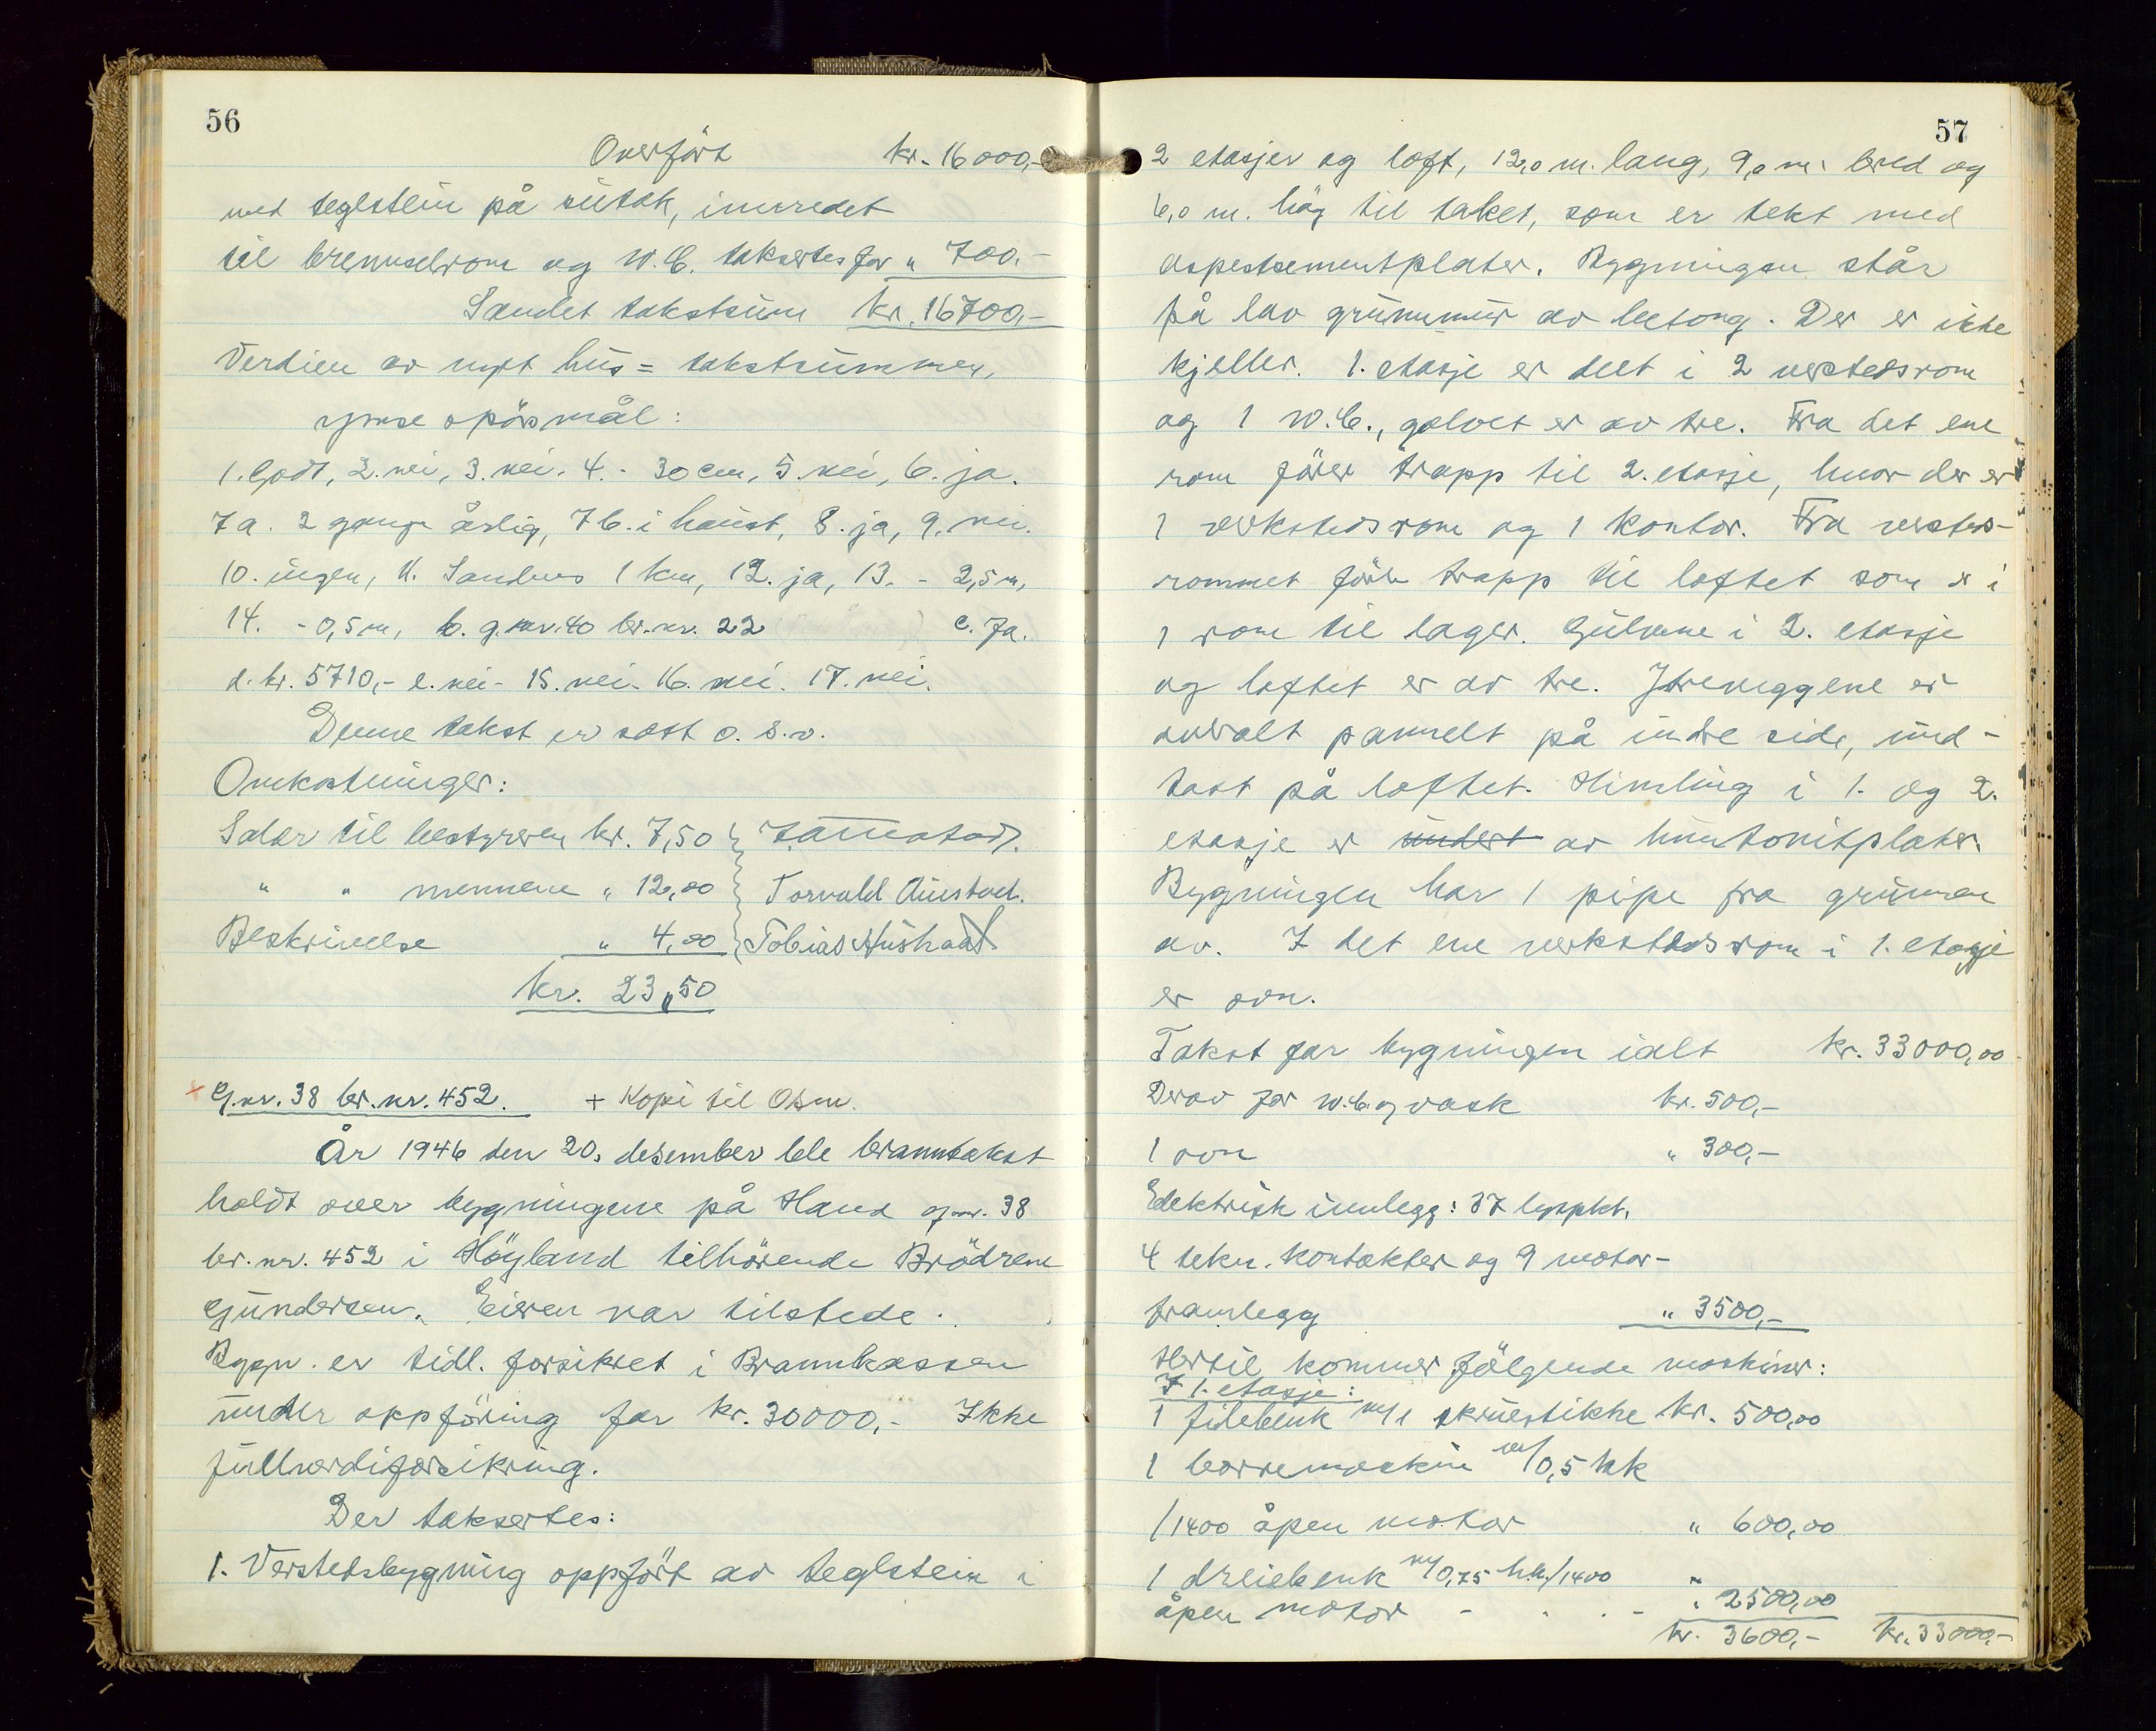 56
Overført kr. 16000,-
med teglstein på sutak, innredet
til brenselrom og W.C. taksertes for " 700.-
Samlet takstsum kr. 16700,-
Verdien av nytt hus = takstsummen,
ymse spörsmål:
1. Godt, 2. nei, 3. nei. 4. - 30 cm, 5. nei, 6. ja.
7 a. 2 gange årlig, 7 b. i haust, 8. ja, 9. nei.
10. ingen, 11. Sandnes 1 km, 12. ja, 13. - 2,5 m,
14. - 0,5 m, b. g.nr. 40 br.nr. 22 c. Ja.
d. kr. 5710,- e. nei - 15. nei. 16. nei. 17. nei.
Denne takst er satt o. s. v.
Omkostninger:
Salær til bestyreren kr. 7,50
" " mennene " 12,00 Torvald Austvoll.
Beskrivelse " 4,00 Tobias Aushaal
kr. 23,50
G.nr. 38 br.nr. 452. + Kopi til Osm.
År 1946 den 20. desember ble branntakst
holdt over bygningene på Hana g.nr. 38
br.nr. 452 i Höyland tilhörende Brödrene
Gundersen. Eieren var tilstede.
Bygn. er tidl. forsikret i Brannkassen
under oppföring for kr. 30000,- Ikke
fullverdiforsikring.
Der taksertes:
1. Verstedsbygning oppfört av teglstein i
57
2 etasjer og loft, 12,0 m. lang, 9,0 m. bred og
6,0 m. høg til taket, som er tekt med
aspestsementplater. Bygningen står
på lav grunnmur av betong. Der er ikke
kjeller. 1. etasje er delt i 2 verstedsrom
og 1 W.C., golvet er av tre. Fra det ene
rom fører trapp til 2. etasje, hvor der er
1 verkstedsrom og 1 kontor. Fra versteds-
rommet förer trapp til loftet som er i
1 rom til lager. Gulvene i 2. etasje
og loftet er av tre. Ytreveggene er
overalt pannelt på indre side, und-
tatt på loftet. Himling i 1. og 2.
etasje er undert av huntonitplater.
Bygningen har 1 pipe fra grunnen
av. I det ene verkstedsrom i 1. etasje
er ovn.
Takst for bygningen ialt kr. 33000,00
Derav for w.c. og vask kr. 500,-
1 ovn " 300,-
Elektrisk innlegg: 37 lyspkt.
4 tekn. kontakter og 9 motor-
framlegg " 3500,-
Hertil kommer fölgende maskiner:
I 1. etasje:
1 filebenk m/1 skruestikke kr. 500,00
1 borremaskin m/0,5 hk
/1400 åpen motor " 600,00
1 dreiebenk m/0,75 h.k./1400 "
åpen motor - . . - " 2500,00
kr. 3600,- kr. 33000,-